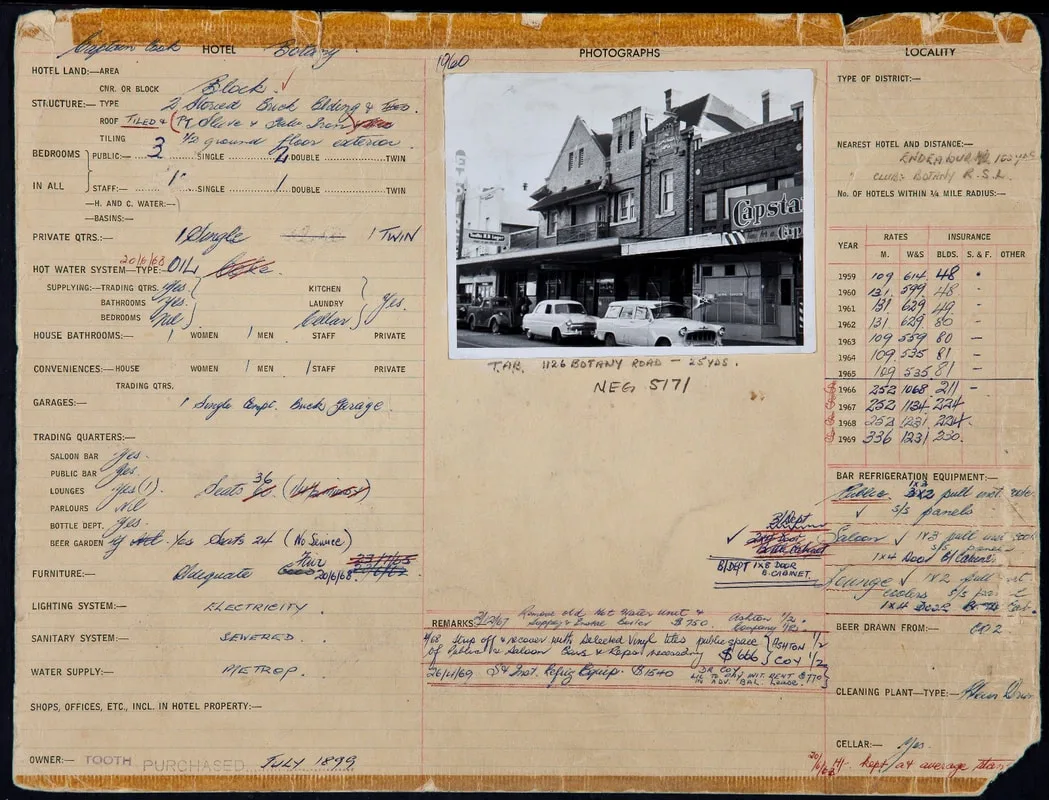 Captain Cook HOTEL Botany
HOTEL LAND:—AREA
CNR. OR BLOCK Block
STRUCTURE:— TYPE 2 Storied Brick Blding &
ROOF TILED & (Pt Slate & Galv Iron)
TILING 1/2 ground floor exterior
BEDROOMS PUBLIC:— 3 SINGLE 4 DOUBLE TWIN
IN ALL STAFF:— 1 SINGLE 1 DOUBLE TWIN
—H. AND C. WATER:—
—BASINS:—
PRIVATE QTRS.:— 1 Single 1 TWIN
20/6/68
HOT WATER SYSTEM—TYPE:— OIL Coke
SUPPLYING:—TRADING QTRS. Yes. KITCHEN
BATHROOMS Yes. LAUNDRY Yes
BEDROOMS Nil Cellar
HOUSE BATHROOMS:— 1 WOMEN 1 MEN STAFF PRIVATE
CONVENIENCES:—HOUSE WOMEN 1 MEN 1 STAFF PRIVATE
TRADING QTRS.
GARAGES:— 1 Single Compt. Brick Garage
TRADING QUARTERS:—
SALOON BAR Yes.
PUBLIC BAR Yes.
LOUNGES Yes (1) Seats 36
PARLOURS Nil
BOTTLE DEPT. Yes.
BEER GARDEN Yes Seats 24 (No Service)
FURNITURE:— Adequate Fair 20/6/68
LIGHTING SYSTEM:— ELECTRICITY.
SANITARY SYSTEM:— SEWERED.
WATER SUPPLY:— METROP.
SHOPS, OFFICES, ETC., INCL. IN HOTEL PROPERTY:—
OWNER:— TOOTH PURCHASED JULY 1899
PHOTOGRAPHS
1960
Capsta
Cap
T.A.B. 1126 BOTANY ROAD — 25 YDS.
NEG 5171
B/Dept
B/DEPT 1X8 DOOR
B. CABINET.
REMARKS: 7/2/67 Remove old Hot Water Unit & Ashton 1/2
Supply & Install Boiler $750. Company 1/2
4/68 Strip off & recover with selected vinyl tiles public space ASHTON 1/2
of Public & Saloon Bars & Repair $666 COY 1/2
26/4/69 S & Inst. Refrig Equip. $1540 DR. COY
LIC TO PAY WKT. RENT $770
IN ADV. BAL. LEASE.
LOCALITY
TYPE OF DISTRICT:—
NEAREST HOTEL AND DISTANCE:—
ENDEAVOUR 160 YDS
CLUB: BOTANY R.S.L.
No. OF HOTELS WITHIN 3/4 MILE RADIUS:—
YEAR RATES INSURANCE
M. W&S BLDS. S. & F. OTHER
1959 109 614 48
1960 131 599 48 -
1961 131 629 49 -
1962 131 629 80 -
1963 109 559 80 -
1964 109 535 81 -
1965 109 535 81 -
1966 252 1068 211 -
1967 252 1134 224
1968 252 1231 224
1969 336 1231 230.
BAR REFRIGERATION EQUIPMENT:—
Public 3X2 pull inst.
S/S panels
Saloon 1X3 pull inst
S/S panels
1X4 Door B/Cabinet
Lounge 1X2 pull
coolers S/S
1X4 DOOR
BEER DRAWN FROM:— CO2
CLEANING PLANT—TYPE:—
CELLAR:— Yes.
20/6/68 Kept at average than